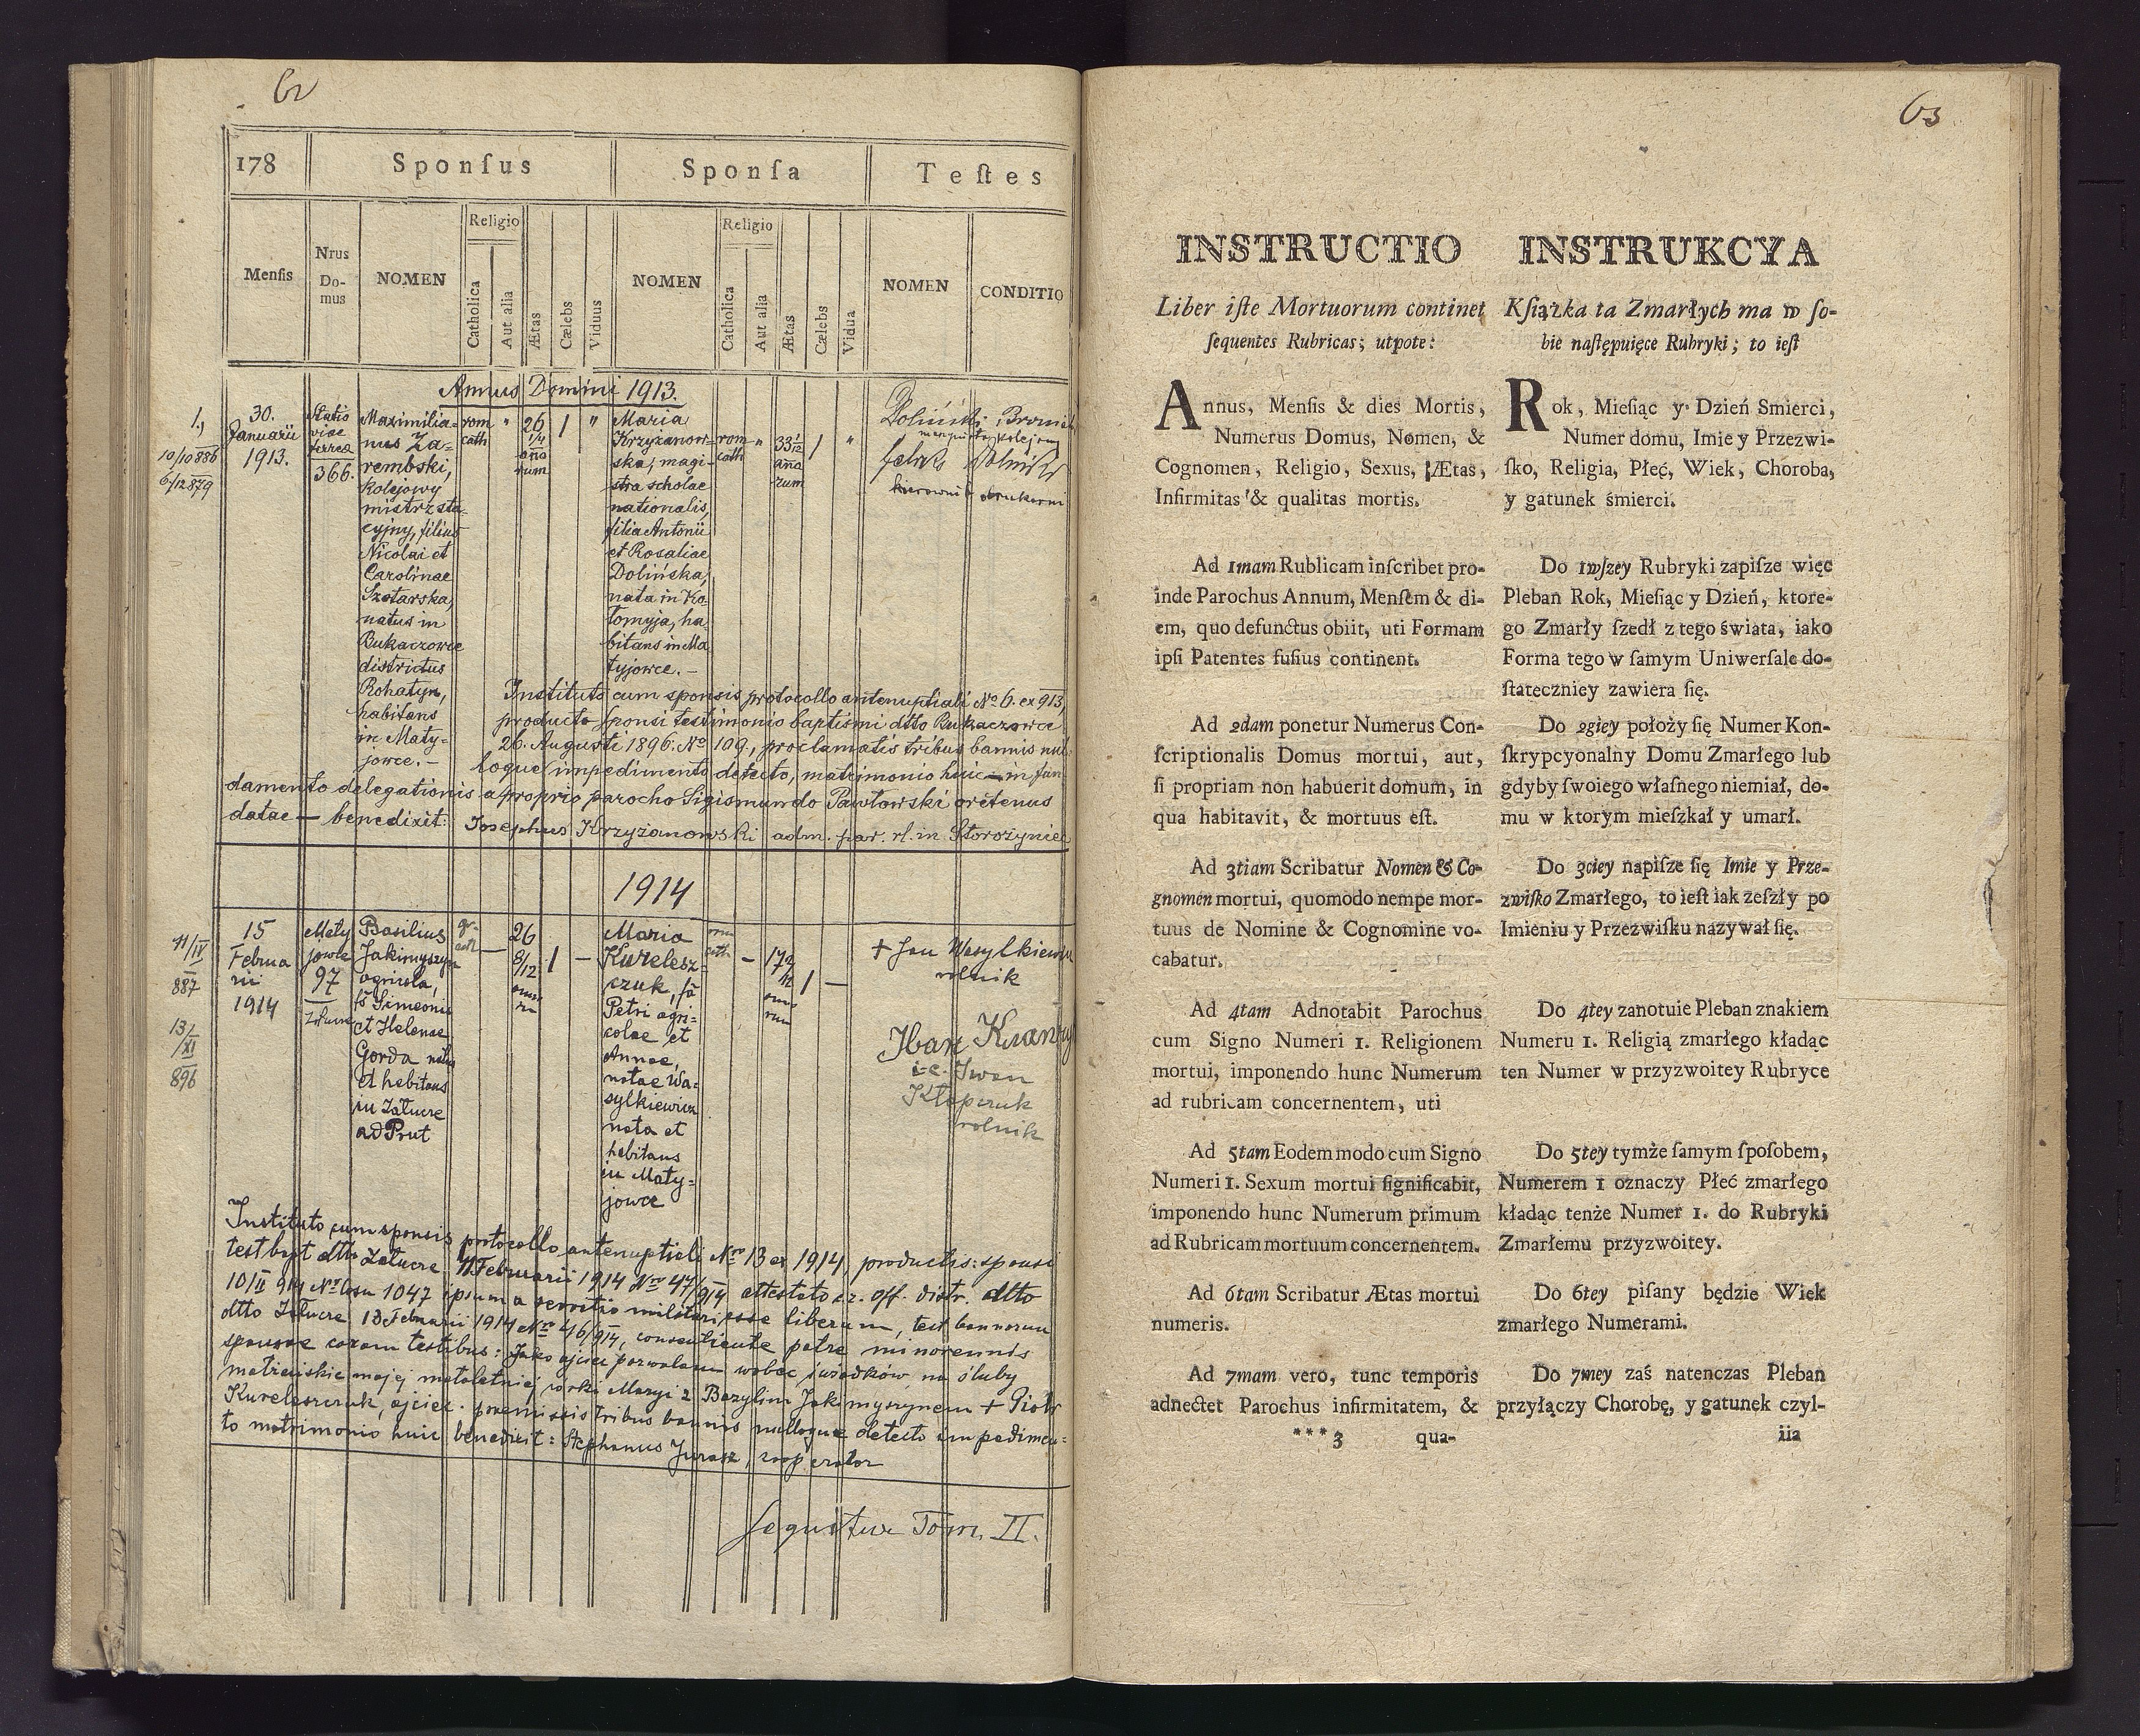 62
178
Sponſus
Sponſa
Teſtes
Menſis
Nrus
Do-
mus
NOMEN
Religio
Catholica
Aut alia
Ætas
Cælebs
Viduus
NOMEN
Religio
Catholica
Aut alia
Ætas
Cælebs
Vidua
NOMEN
CONDITIO
Annus Domini 1913.
1.,
10/10 886
6/12 879
30.
Januarii
1913.
Statio
viae
ferrea
366.
Maximilia-
nus Za-
rembski,
kolejowy
mistrz sta-
cyjny, filius
Nicolai et
Carolinae
Szatarska,
natus in
Bukaczowce
districtus
Rohatyn,
habitans
in Maty-
jowce.-
rom
cath
"
26
1/4
año
rum
1
"
Maria
Krzyżanow-
ska, magi-
stra scholae
nationalis,
filia Antonii
et Rosaliae
Dolińska,
nata in Ko-
łomyja, ha-
bitans in Ma
tyjowce.-
rom
cath
"
33 1/12
año
rum
1
"
Doliński
kierownik drukarni
Instituto cum sponsis protocollo antenuptiali No 6. ex 913,
producto sponsi testimonio baptismi dtto Bukaczowce
26. Augusti 1896. No 109., proclamatis tribus bannis nul-
loque impedimento detecto, matrimonio huic - in fun
damento delegationis a proprio parocho Sigismundo Pawłowski orêtenus
datae - benedixit: Josephus Krzyżanowski adm. par. rl. in Storozyniec
1914
11/IV
887
13/
/XI
896
15
Februa
rii
1914
Maty
jowce
97
Załucze
Basilius
Jakimyszyn
agricola,
fs Simeonis
et Helenae
Gorda natus
et habitans
in Załucze
ad Prut
gr.
cath
-
26
8/12
1
-
Maria
Kurelesz-
czuk, fa
Petri agri-
colae et
Annae,
natae Wa-
sylkiewicz
nata et
habitans
in Maty-
jowce
rom
cath
-
17
1
-
+ Jan Wasylkiewicz
rolnik
i.e. Iwan
Kłapczuk
rolnik
Instituto cum sponsis protocollo antenuptiali Nro 13 ex 1914, productis: sponsi
test bapt dtto Załucze 11 Februarii 1914 Nro 47/914 attestato cz. off. distr. dtto
10/II 914 No losu 1047 ipsum a servitio militari esse liberum, test bannorum
dtto Załucze 13 Februarii 1914 Nro 46/914, consentiente patre minorennis
sponsae coram testibus: Jako ojciec pozwalam wobec świadków na śluby
małżeńskie mojej małoletniej córki Maryi z Bazylim Jakimyszynem + Piotr
Kureleszczuk, ojciec. praemissis tribus bannis nulloque detecto impedimen-
to matrimonio huic benedixit: Stephanus Jurasz, cooperator
Sequitur Tom. II.
63
INSTRUCTIO
Liber iſte Mortuorum continet
ſequentes Rubricas; utpote:
Annus, Menſis & dies Mortis,
Numerus Domus, Nomen, &
Cognomen, Religio, Sexus, Ætas,
Infirmitas & qualitas mortis.
Ad 1mam Rublicam inſcribet pro-
inde Parochus Annum, Menſem & di-
em, quo defunctus obiit, uti Formam
ipſi Patentes fuſius continent.
Ad 2dam ponetur Numerus Con-
ſcriptionalis Domus mortui, aut,
ſi propriam non habuerit domum, in
qua habitavit, & mortuus eſt.
Ad 3tiam Scribatur Nomen & Co-
gnomen mortui, quomodo nempe mor-
tuus de Nomine & Cognomine vo-
cabatur.
Ad 4tam Adnotabit Parochus
cum Signo Numeri 1. Religionem
mortui, imponendo hunc Numerum
ad rubricam concernentem, uti
Ad 5tam Eodem modo cum Signo
Numeri 1. Sexum mortui ſignificabit,
imponendo hunc Numerum primum
ad Rubricam mortuum concernentem.
Ad 6tam Scribatur Ætas mortui
numeris.
Ad 7mam vero, tunc temporis
adnectet Parochus infirmitatem, &
***3 qua-
INSTRUKCYA
Kſiążka ta Zmarłych ma w ſo-
bie naſtępuięce Rubryki; to ieſt
Rok, Mieſiąc y Dzień Smierci,
Numer domu, Imie y Przezwi-
ſko, Religia, Płeć, Wiek, Choroba,
y gatunek śmierci.
Do 1wſzey Rubryki zapiſze więc
Pleban Rok, Mieſiąc y Dzień, ktore-
go Zmarły ſzedł z tego świata, iako
Forma tego w ſamym Uniwerſale do-
ſtateczniey zawiera ſię.
Do 2giey położy ſię Numer Kon-
ſkrypcyonalny Domu Zmarłego lub
gdyby ſwoiego właſnego niemiał, do-
mu w ktorym mieſzkał y umarł.
Do 3ciey napiſze ſię Imie y Prze-
zwiſko Zmarłego, to ieſt iak zeſzły po
Imieniu y Przezwiſku nazywał ſię.
Do 4tey zanotuie Pleban znakiem
Numeru 1. Religią zmarłego kładąc
ten Numer w przyzwoitey Rubryce
Do 5tey tymże ſamym ſpoſobem,
Numerem 1 oznaczy Płeć zmarłego
kładąc tenże Numer 1. do Rubryki
Zmarłemu przyzwoitey.
Do 6tey piſany będzie Wiek
zmarłego Numerami.
Do 7mey zaś natenczas Pleban
przyłączy Chorobę, y gatunek czyl-
iia